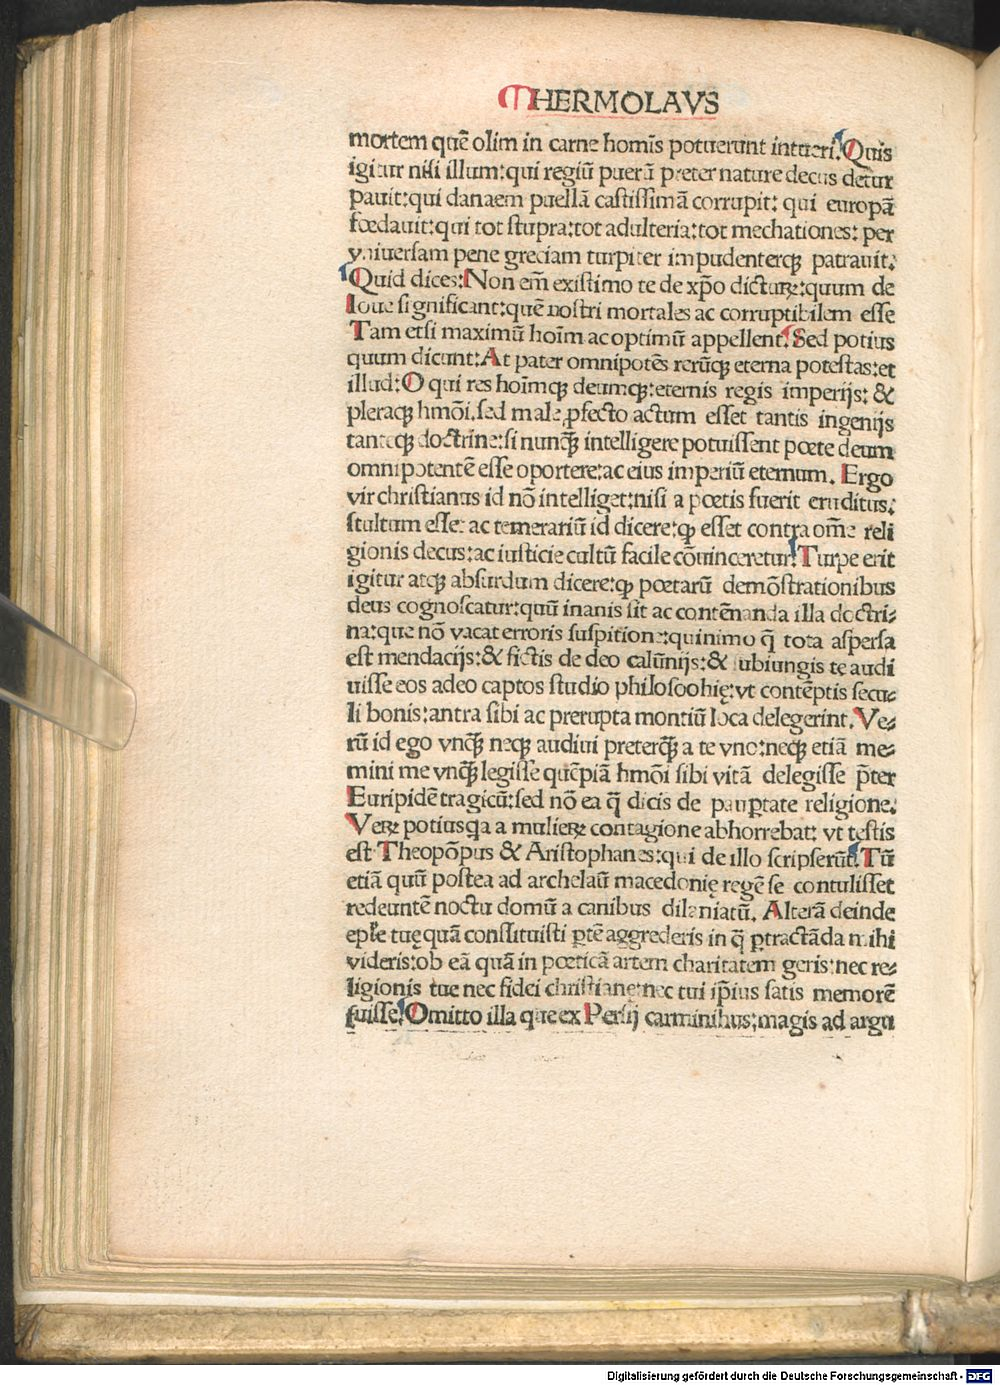 HERMOLAVS
mortem quē olim in carne homīs potuerunt intueri. Quis
igitur nisi illum: qui regiū puerū preter nature decus detur
pauit: qui danaem puellā castissimā corrupit: qui europā
fœdauit: qui tot stupra: tot adulteria: tot mechationes: per
vniuersam pene greciam turpiter impudenterqꝫ patrauit.
Quid dices: Non em̄ existimo te de xp̄o dicturꝫ: quum de
Ioue significant: quē nostri mortales ac corruptibilem esse
Tam etsi maximū hoīm ac optimū appellent. Sed potius
quum dicunt: At pater omnipotēs rerūqꝫ eterna potestas: et
illud: O qui res hoīmqꝫ deumqꝫ: eternis regis imperijs: &
pleraqꝫ hmōi. sed male ꝓfecto actum esset tantis ingenijs
tanteqꝫ doctrine: si nunqꝫ̄ intelligere potuissent pœte deum
omnipotentē esse oportere: ac eius imperiū eternum. Ergo
vir christianus id nō intelliget: nisi a pœtis fuerit eruditus.
stultum esse: ac temerariū id dicere: ꝙ esset contra om̄e reli
gionis decus: ac iusticie cultū facile cōuinceretur. Turpe erit
igitur atqꝫ absurdum dicere: ꝙ pœtarū demōstrationibus
deus cognoscatur: quū inanis sit ac contēnanda illa doctri-
na: que nō vacat erroris suspitione: quinimo q̄ tota aspersa
est mendacijs: & fictis de deo calūnijs: & subiungis te audi
uisse eos adeo captos studio philosophię: vt contēptis secu-
li bonis: antra sibi ac prerupta montiū loca delegerint. Ve-
rū id ego vnqꝫ̄ neqꝫ audiui preterqꝫ̄ a te vno: neqꝫ etiā me-
mini me vnqꝫ̄ legisse quēpiā hmōi sibi vitā delegisse p̄ter
Euripidē tragicū: sed nō ea q̄ dicis de paup̱tate religione.
Verꝫ potiusqꝫa a mulierꝫ contagione abhorrebat: vt testis
est Theopōpus & Aristophanes: qui de illo scripserūt. Tū
etiā quū postea ad archelaū macedonię regē se contulisset
redeuntē noctu domū a canibus dilaniatū. Alterā deinde
ep̄le tuę quā constituisti ꝑtē aggrederis in q̄ ꝑtractāda mihi
videris: ob eā quā in pœticā artem charitatem geris: nec re-
ligionis tue nec fidei christiane: nec tui ip̄ius satis memorē
fuisse. Omitto illa que ex Persij carminibus: magis ad argu
Digitalisierung gefördert durch die Deutsche Forschungsgemeinschaft - DFG